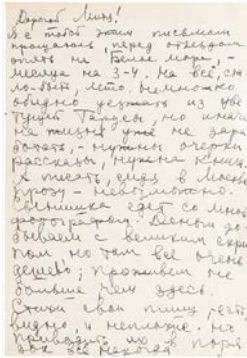 Дорогой Минц!
Я с тобой этим письмом
прощаюсь, перед отъездом
опять на Белое море, –
месяца на 3–4. На всё, ст.
ло-быть, лето. Немножко
обидно уезжать из цве-
тущей Тарусы, но иначе
на жизнь уже не зара-
ботать, – нужны очерки
рассказы, нужна книга.
А писать, сидя в Москве
прозу – невозможно.
едет со мной
фотографом. Деньги до-
бываем с великим скри-
пом но там всё очень
дёшево; проживем не
больше чем здесь.
Стихи свои пишу, есть,
видно, и неплохие. Но
приводить их в поря-
док всё некогда